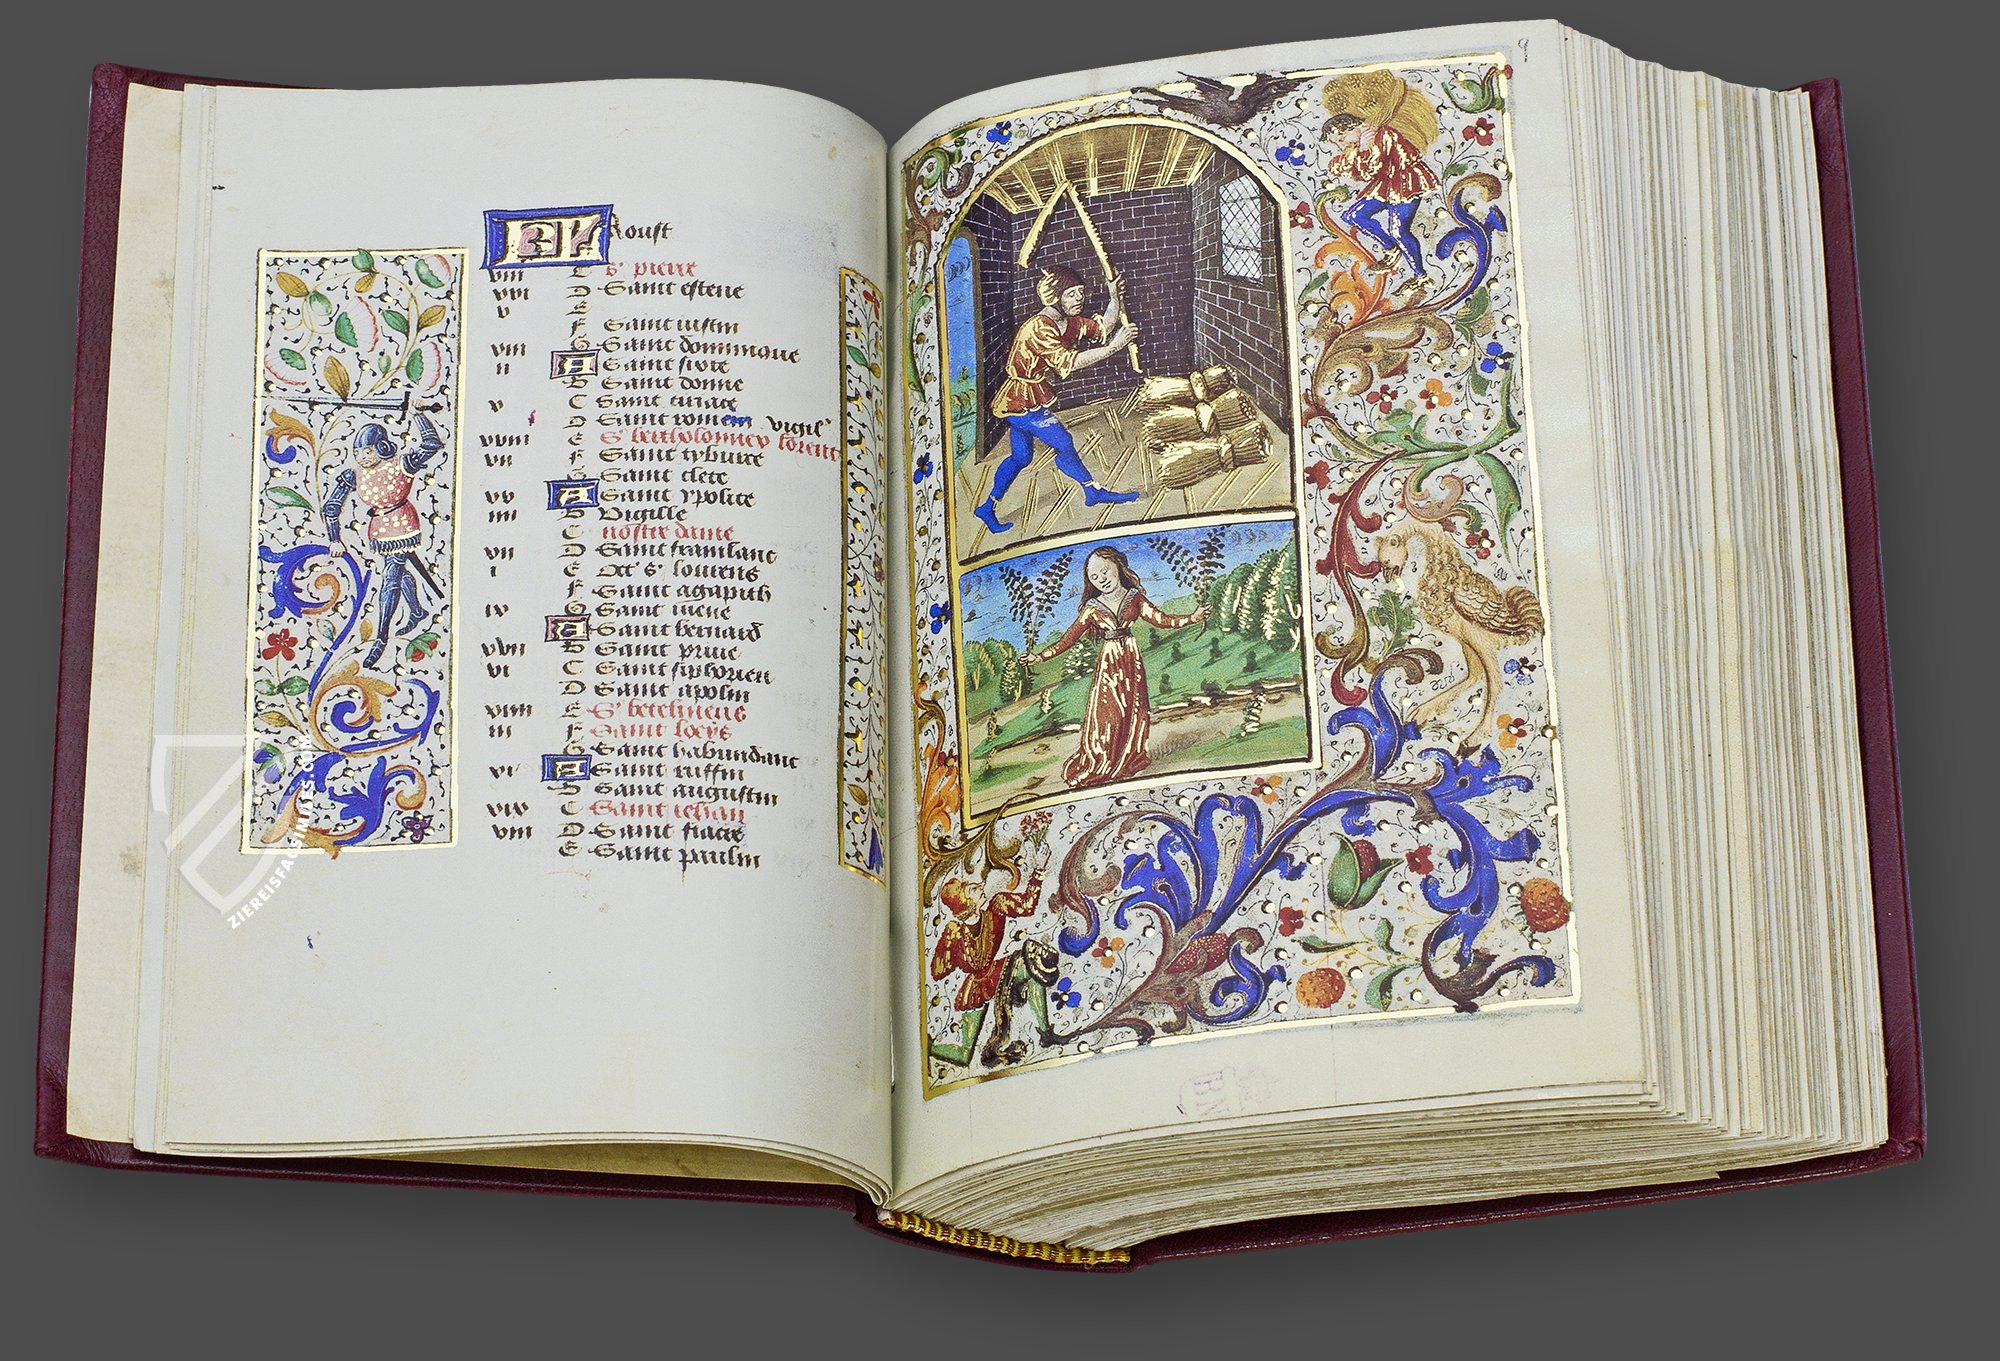 KL Aoust
viii C S' pierre
xvi D Saint estene
v E
F Saint iustin
xiii G Saint dominique
ii A Saint sixte
B Saint donne
x C Saint ciriace
D Saint romein vigil'
xviii E S' bertholomiey lorent
vii F Saint tyburce
G Saint clete
xv A Saint ypolite
iiii B Vigille
C nostre dame
xii D Saint franslanc
i E oct' s' lourens
F Saint agapith
ix G Saint
A Saint bernard
xvii B Saint priue
vi C Saint siphorien
D Saint apolin
xiiii E S' betelmeus
iii F Saint loeys
G Saint habundant
xi A Saint ruffin
B Saint augustin
xix C Saint iehan
viii D Saint fiacre
E Saint paulin
ZIEREISFACSIMILES.COM
BN